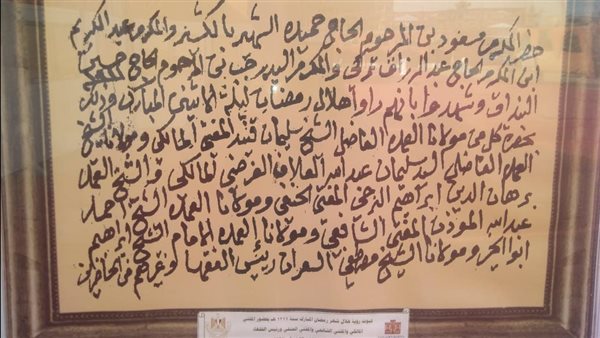 حضر المكرم مسعود بن المرحوم الحاج حميده الشهير بالكشنر والمكرم عبد الكريم
ابن المكرم الحاج عبد الرزاق تركى والمكرم السيد رجب بن المرحوم الحاج حسين
البندراق وشهدوا بانهم راوا هلال رمضان ليلة الاثنين المبارك وذلك
بحضرة كل من مولانا العمدة الفاضل الشيخ سليمان المفتى المالكى ومولانا الشيخ
العمدة الفاضل السيد سليمان عبد الله العلاف الفرضى المالكى والشيخ العمدة
برهان الدين ابراهيم المفتى الحنفى ومولانا العمدة الشيخ احمد
عبد الله المؤذن المفتى الشافعى ومولانا العمدة الامام الشيخ ابراهيم
ابو الخير ومولانا الشيخ مصطفى رئيس الفقها وغيرهم من الحاضرين
ثبوت رؤية هلال شهر رمضان المبارك سنة هـ بحضور المفتى
المالكى والمفتى الشافعى والمفتى الحنفى ورئيس الفقهاء